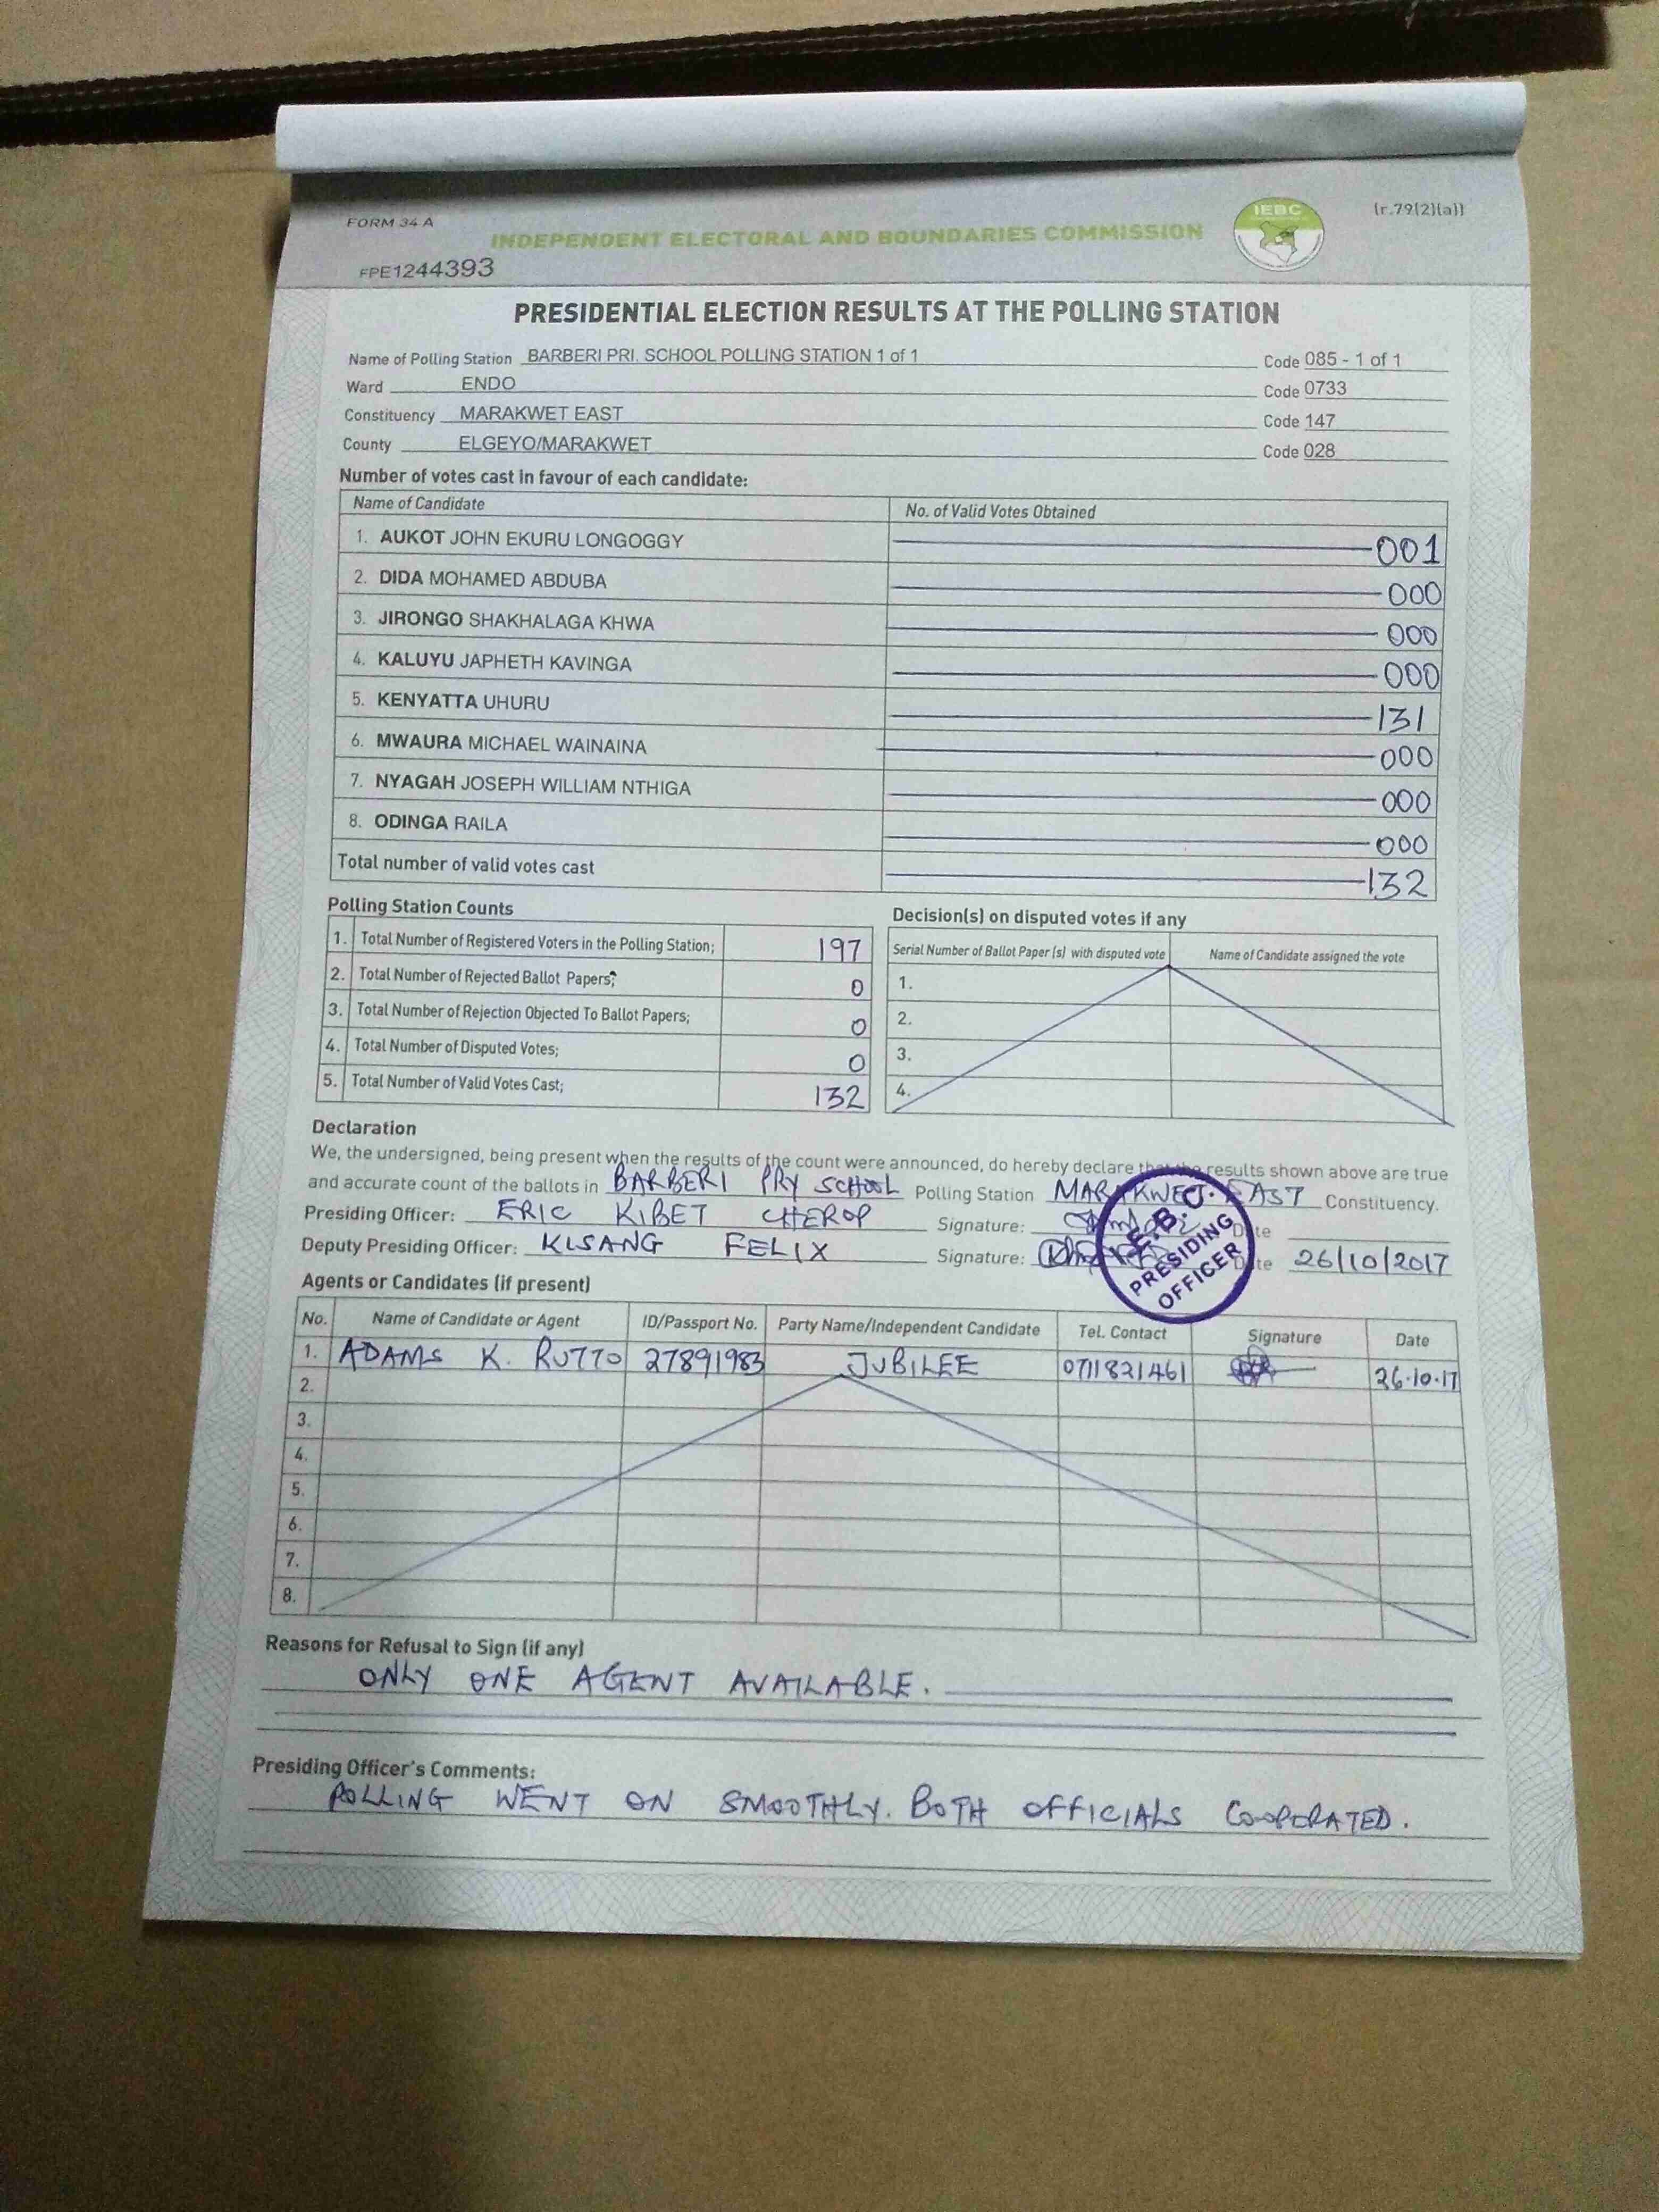 FORM 34 A
(r.79(2)(a))
IEBC
INDEPENDENT ELECTORAL AND BOUNDARIES COMMISSION
FPE1244393
PRESIDENTIAL ELECTION RESULTS AT THE POLLING STATION
Name of Polling Station BARBERI PRI. SCHOOL POLLING STATION 1 of 1 Code 085 - 1 of 1
Ward ENDO Code 0733
Constituency MARAKWET EAST Code 147
County ELGEYO/MARAKWET Code 028
Number of votes cast in favour of each candidate:
Name of Candidate No. of Valid Votes Obtained
1. AUKOT JOHN EKURU LONGOGGY 001
2. DIDA MOHAMED ABDUBA 000
3. JIRONGO SHAKHALAGA KHWA 000
4. KALUYU JAPHETH KAVINGA 000
5. KENYATTA UHURU 131
6. MWAURA MICHAEL WAINAINA 000
7. NYAGAH JOSEPH WILLIAM NTHIGA 000
8. ODINGA RAILA 000
Total number of valid votes cast 132
Polling Station Counts
1. Total Number of Registered Voters in the Polling Station; 197
2. Total Number of Rejected Ballot Papers; 0
3. Total Number of Rejection Objected To Ballot Papers; 0
4. Total Number of Disputed Votes; 0
5. Total Number of Valid Votes Cast; 132
Decision(s) on disputed votes if any
Serial Number of Ballot Paper (s) with disputed vote Name of Candidate assigned the vote
1.
2.
3.
4.
Declaration
We, the undersigned, being present when the results of the count were announced, do hereby declare that the results shown above are true
and accurate count of the ballots in BARBERI PRY SCHOOL Polling Station MARAKWET EAST Constituency.
Presiding Officer: ERIC KIBET CHEROP Signature: Date
Deputy Presiding Officer: KISANG FELIX Signature: Date 26/10/2017
PRESIDING
OFFICER
Agents or Candidates (if present)
No. Name of Candidate or Agent ID/Passport No. Party Name/Independent Candidate Tel. Contact Signature Date
1. ADAMS K. RUTTO 27891983 JUBILEE 0711821461 26.10.17
2.
3.
4.
5.
6.
7.
8.
Reasons for Refusal to Sign (if any)
ONLY ONE AGENT AVAILABLE.
Presiding Officer's Comments:
POLLING WENT ON SMOOTHLY. BOTH OFFICIALS COOPERATED.